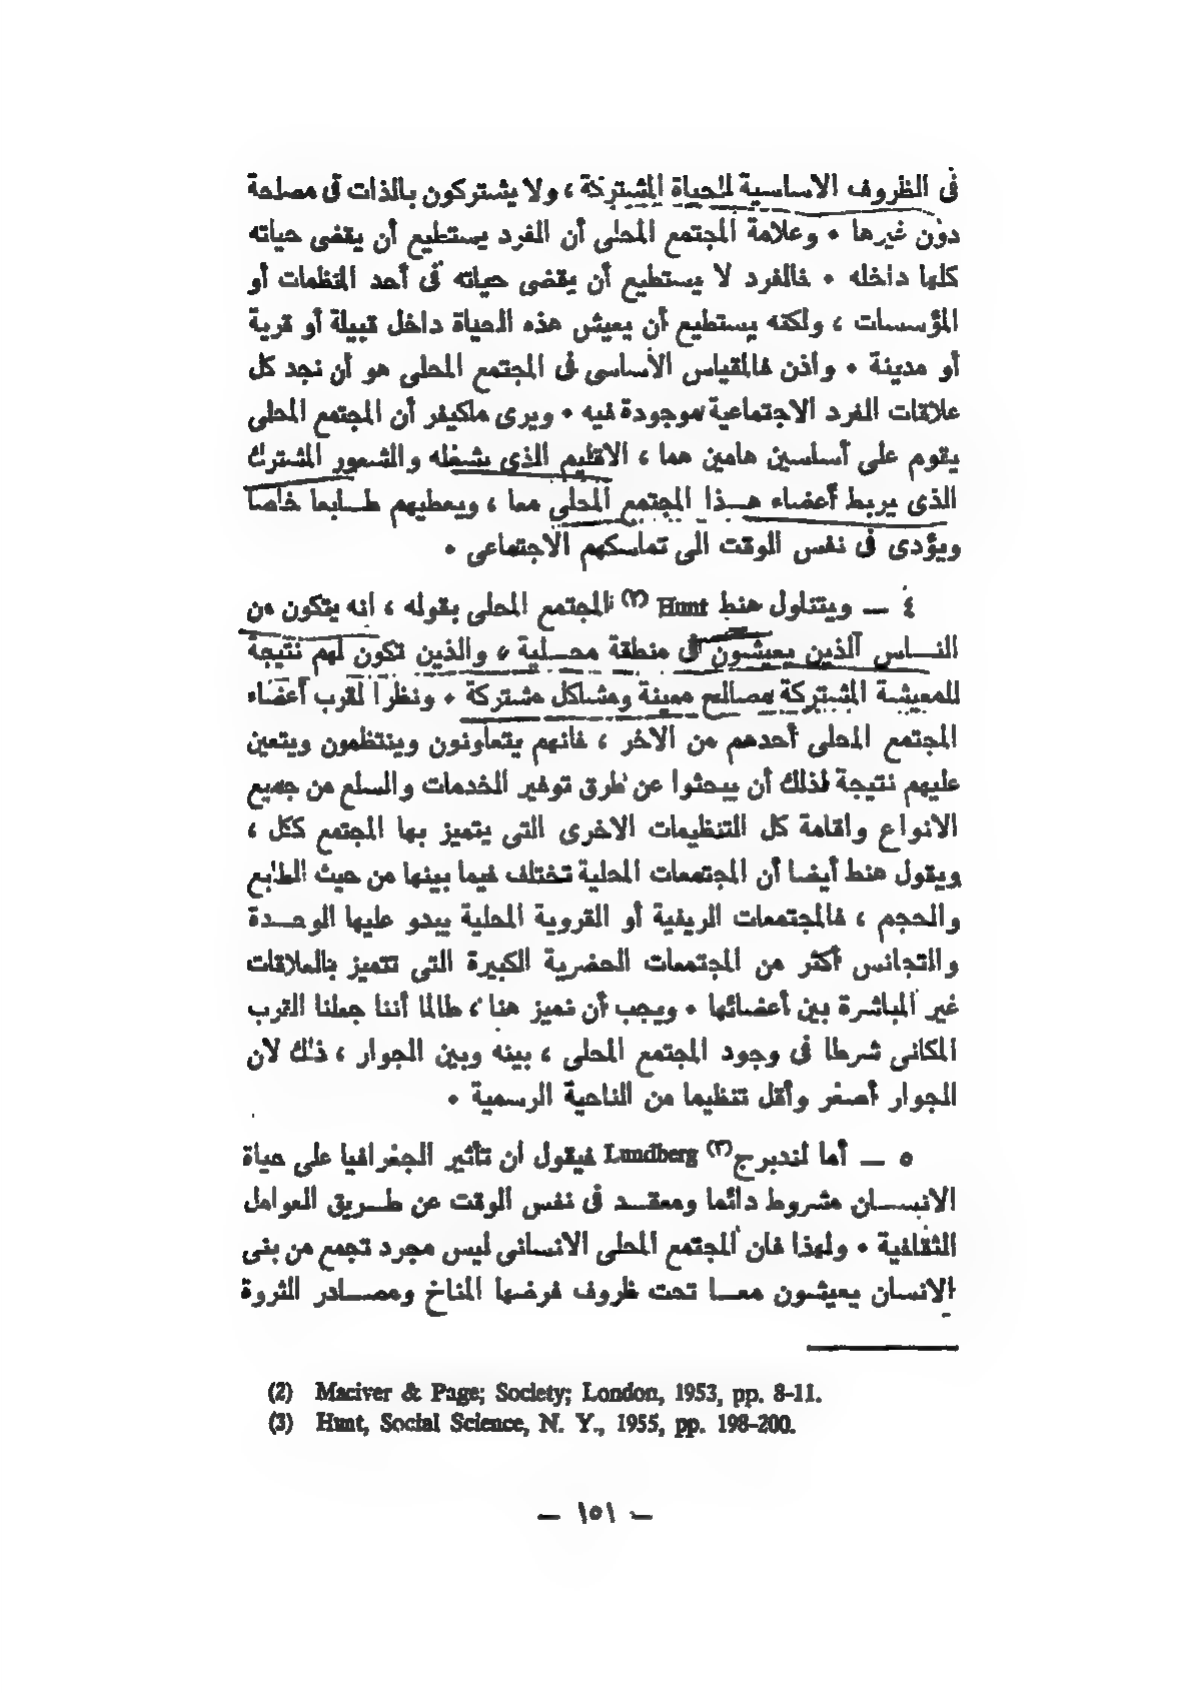 فى الظروف الاساسية للحياة المشتركة ، ولا يشتركون بالذات فى مصلحة
دون غيرها • وعلامة المجتمع المحلى أن الفرد يستطيع أن يقضى حياته
كلها داخله • فالفرد لا يستطيع أن يقضى حياته فى أحد المنظمات أو
المؤسسات ، ولكنه يستطيع أن يعيش هذه الحياة داخل قبيلة أو قرية
أو مدينة • واذن فالمقياس الأساسى فى المجتمع المحلى هو أن نجد كل
علاقات الفرد الاجتماعية موجودة فيه • ويرى ماكيفر أن المجتمع المحلى
يقوم على أساسين هامين هما ، الاقليم الذى يشغله والشعور المشترك
الذى يربط أعضاء هــذا المجتمع المحلى معا ، ويعطيهم طــابعا خاصا
ويؤدى فى نفس الوقت الى تماسكهم الاجتماعى •
٤ — ويتناول هنط Hunt (٢) المجتمع المحلى بقوله ، انه يتكون من
النــاس الذين يعيشون فى منطقة محــلية ، والذين تكون لهم نتيجة
للمعيشة المشتركة مصالح معينة ومشاكل مشتركة • ونظرا لقرب أعضاء
المجتمع المحلى أحدهم من الاخر ، فانهم يتعاونون وينتظمون ويتعين
عليهم نتيجة لذلك أن يبحثوا عن طرق توفير الخدمات والسلع من جميع
الانواع واقامة كل التنظيمات الاخرى التى يتميز بها المجتمع ككل ،
ويقول هنط أيضا أن المجتمعات المحلية تختلف فيما بينها من حيث الطابع
والحجم ، فالمجتمعات الريفية أو القروية المحلية يبدو عليها الوحــدة
والتجانس أكثر من المجتمعات الحضرية الكبيرة التى تتميز بالعلاقات
غير المباشرة بين أعضائها • ويجب أن نميز هنا ، طالما أننا جعلنا القرب
المكانى شرطا فى وجود المجتمع المحلى ، بينه وبين الجوار ، ذلك لان
الجوار أصغر وأقل تنظيما من الناحية الرسمية •
٥ — أما لندبرج(٣) Lundberg فيقول ان تأثير الجغرافيا على حياة
الانســان مشروط دائما ومعقــد فى نفس الوقت عن طــريق العوامل
الثقافية • ولهذا فان المجتمع المحلى الانسانى ليس مجرد تجمع من بنى
الانسان يعيشون معــا تحت ظروف فرضها المناخ ومصــادر الثروة
(2) Maciver & Page; Society; London, 1953, pp. 8-11.
(3) Hunt, Social Science, N. Y., 1955, pp. 198-200.
— ١٥١ —